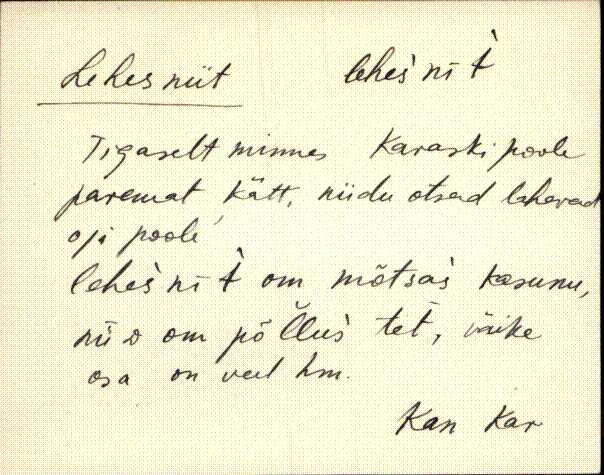 Lehesniit lehes̀ nī t̀
Tigaselt minnes Karaski poole
paremat kätt, niidu otsad lähevad
oja poole
lehes̀ nī t̀ om mõtsas̀ kasunu,
nüö om põllus̀ tet́, väike
osa on veel hm.
Kan Kar